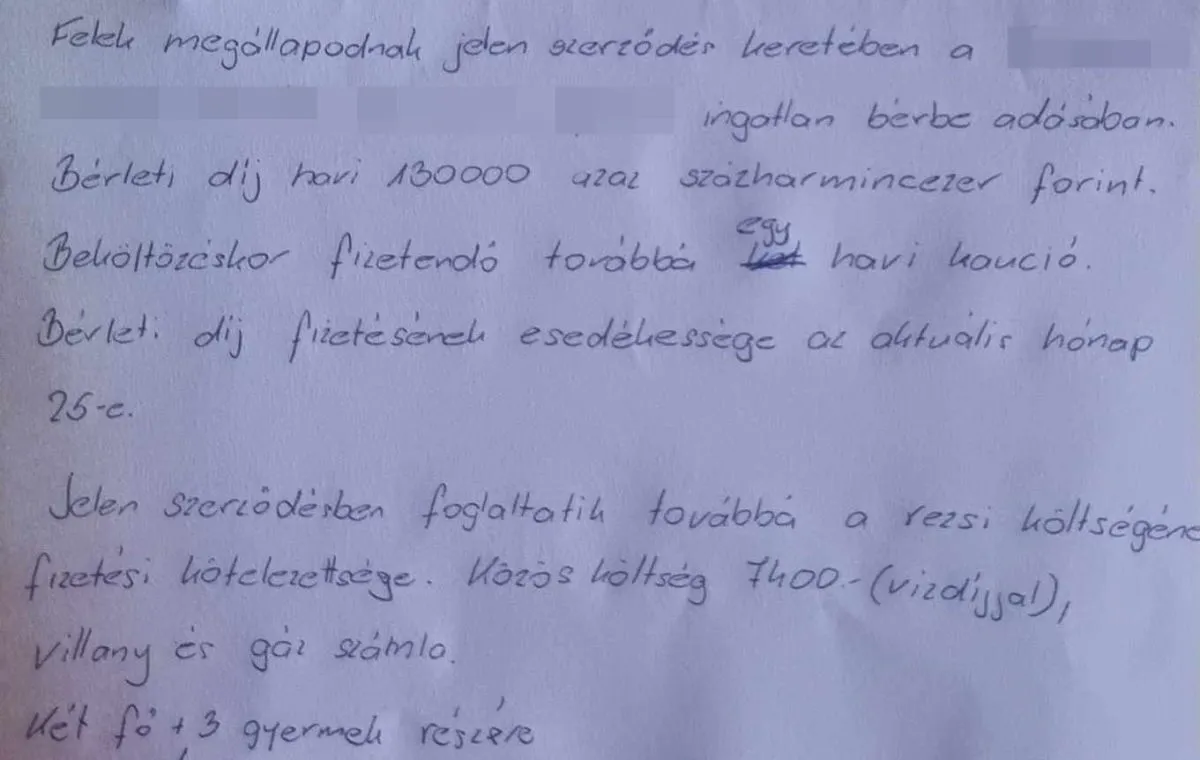 Felek megállapodnak jelen szerződés keretében a
ingatlan bérbe adásában.
Bérleti díj havi 130000 azaz százharmincezer forint.
Beköltözéskor fizetendő továbbá egy havi kaució.
Bérleti díj fizetésének esedékessége az aktuális hónap
25-e.
Jelen szerződésben foglaltatik továbbá a rezsi költségéne
fizetési kötelezettsége. Közös költség 7400.-(vizdíjjal),
villany és gáz számla.
Két fő + 3 gyermek részére